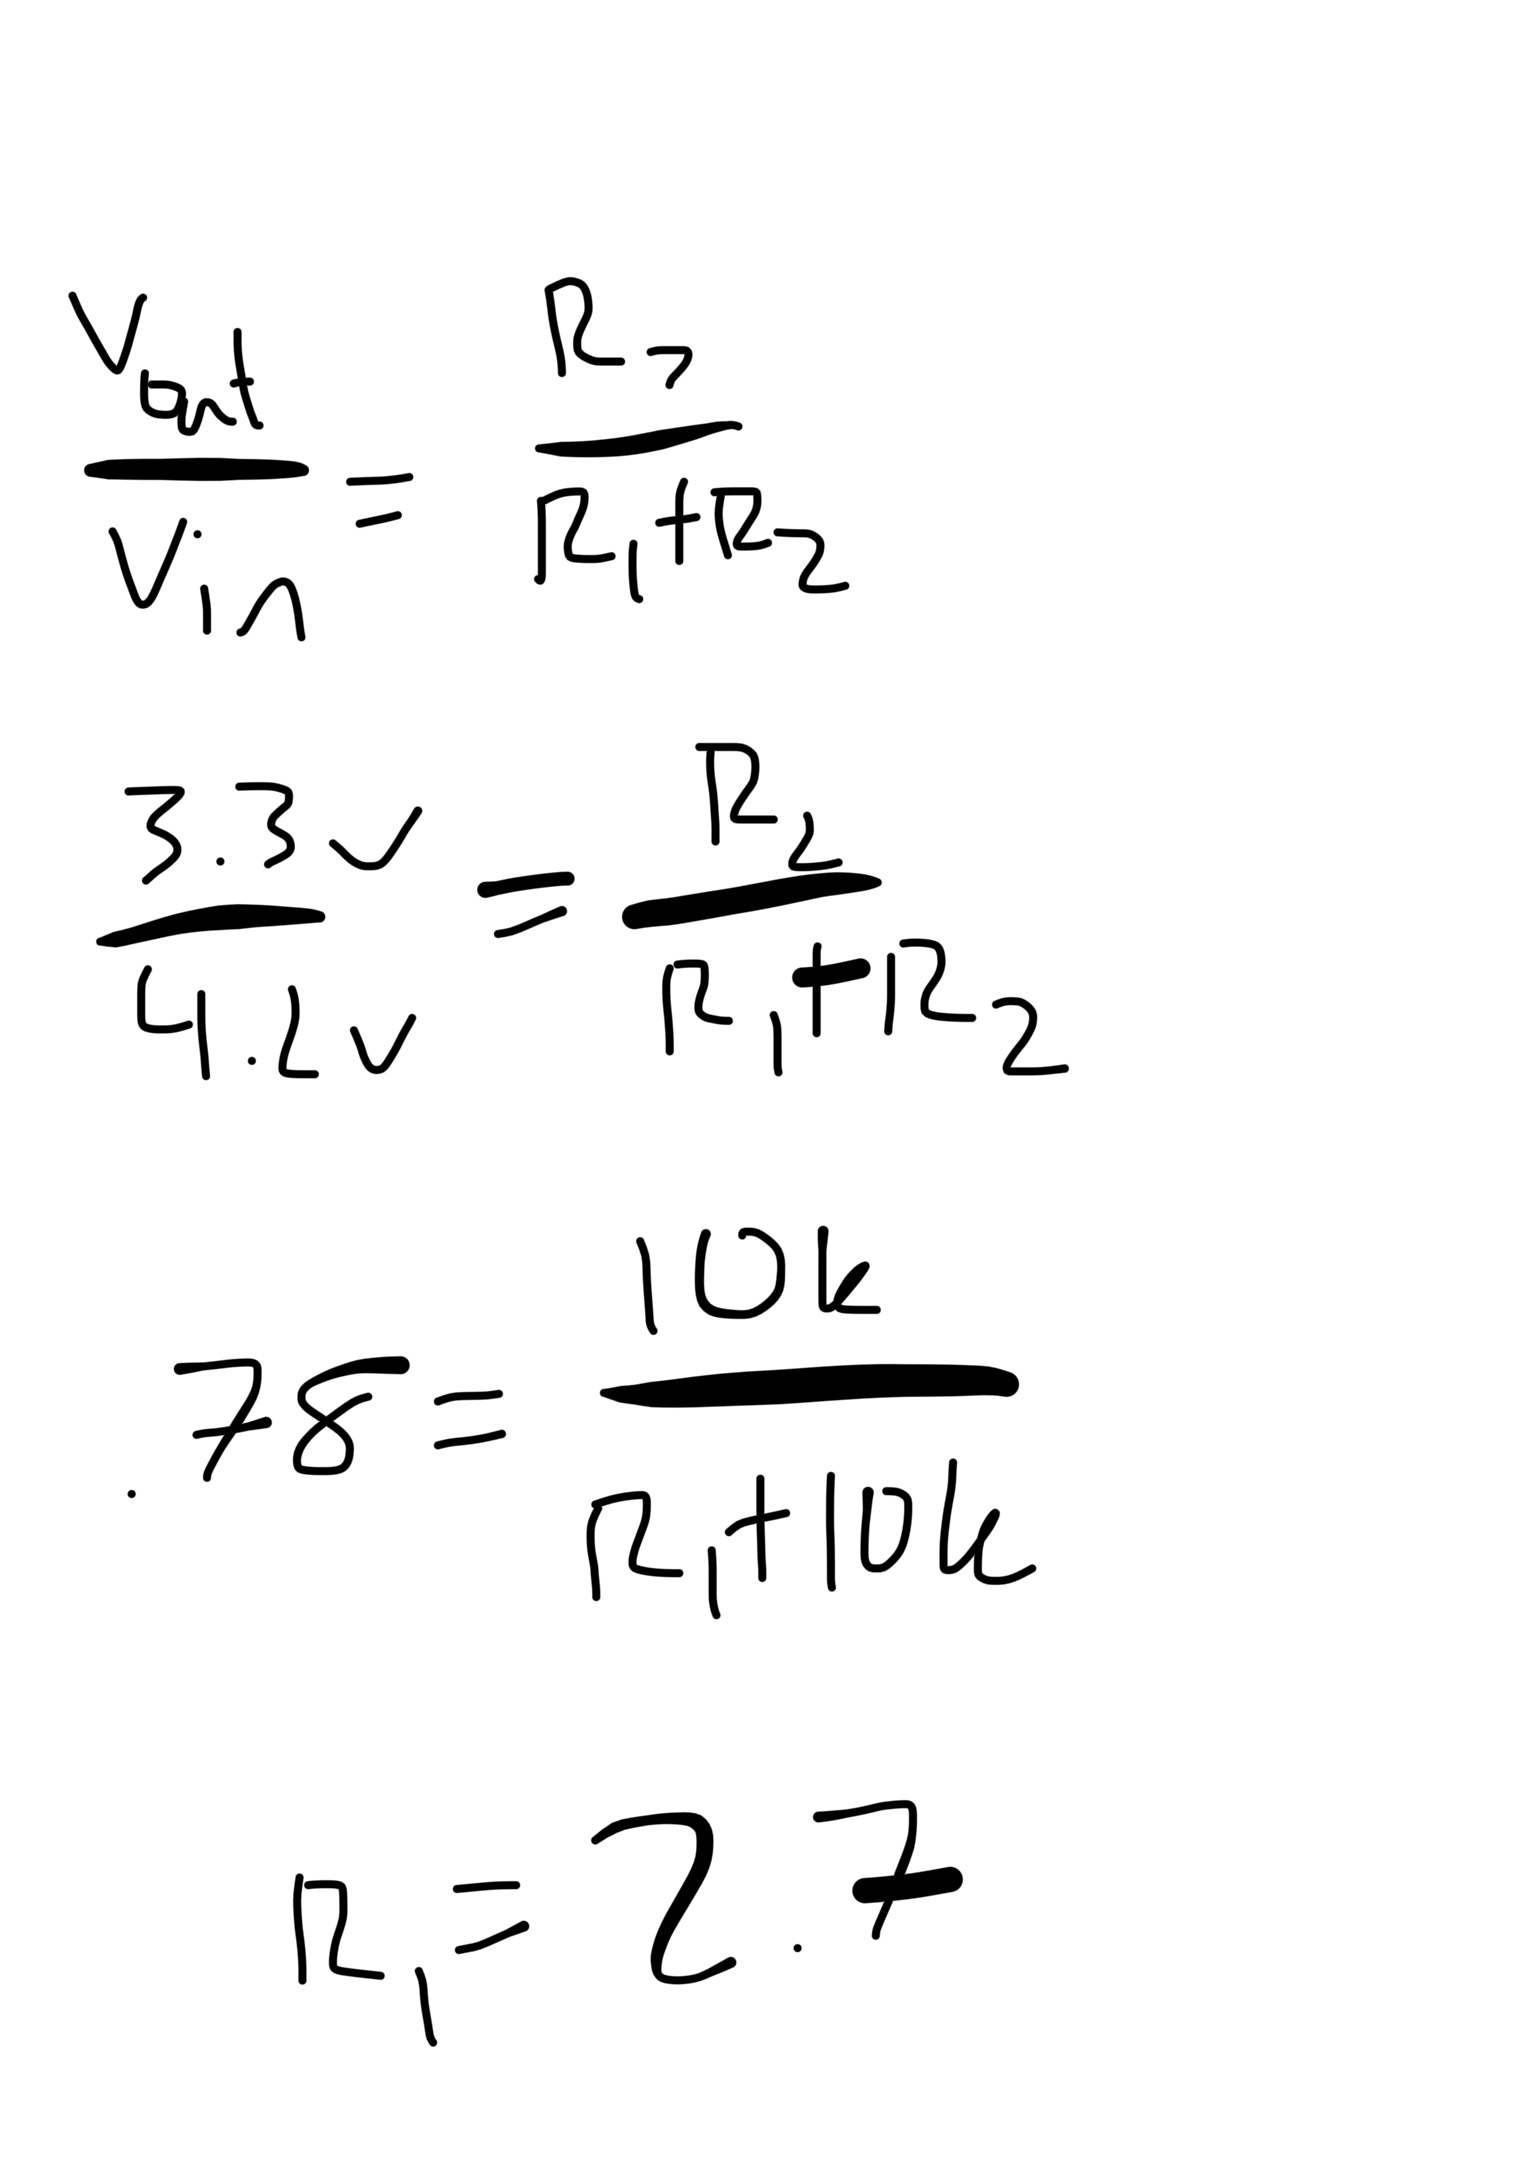 Vout / Vin = R2 / R1+R2
3.3v / 4.2v = R2 / R1+R2
.78 = 10k / R1+10k
R1 = 2.7